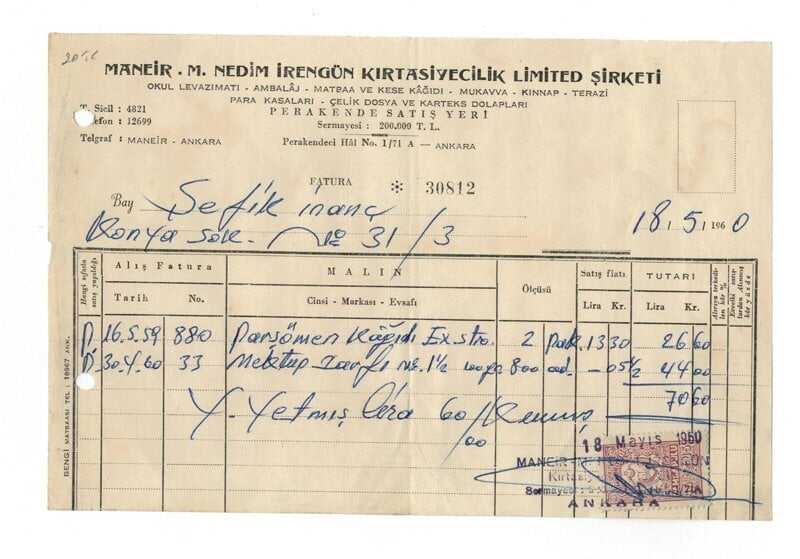 20TL
MANEİR . M. NEDİM İRENGÜN KIRTASİYECİLİK LİMİTED ŞİRKETİ
OKUL LEVAZIMATI - AMBALÂJ - MATBAA VE KESE KÂĞIDI - MUKAVVA - KINNAP - TERAZİ
PARA KASALARI - ÇELİK DOSYA VE KARTEKS DOLAPLARI
PERAKENDE SATIŞ YERİ
T. Sicil : 4821
Sermayesi : 200.000 T. L.
efon : 12699
Telgraf : MANEİR - ANKARA
Perakendeci Hâl No. 1/71 A — ANKARA
FATURA ❇ 30812
Bay Şefik inanç
18/5/1960
Konya sok. No 31/3
Hangi sıfatla satış yapıldığı
Alış Fatura
MALIN
Ölçüsü
Satış fiatı
TUTARI
Tarih No. Cinsi - Markası - Evsafı Lira Kr. Lira Kr.
P. 16.5.59 880 Parşömen Kâğıdı Exstra. 2 pak. 13 30 26 60
P. 30.4.60 33 Mektup Zarfı No. 1½ 800 ad. - 05½ 44 00
70 60
Y. Yetmiş lira 60/00 Kuruş
18 Mayıs 1960
MANEİR
Kırtasiy
Sermayesi
ANKARA
BENGİ MATBAASI TEL : 18967 ANK.